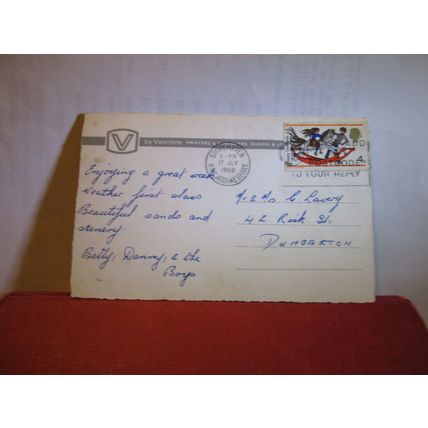 V by Valentine PRINTERS & PUBLISHERS, DUNDEE &
STONEHAVEN
5 - PM
17 JLY
1969
KINCARDINESHIRE
4d
ADD
POSTCODE
TO YOUR REPLY
Enjoying a great week
Weather first class
Beautiful sands and
scenery
Betty, Danny, & the
Boys
Mr & Mrs C Lavery
42 Risk St.
DUMBARTON